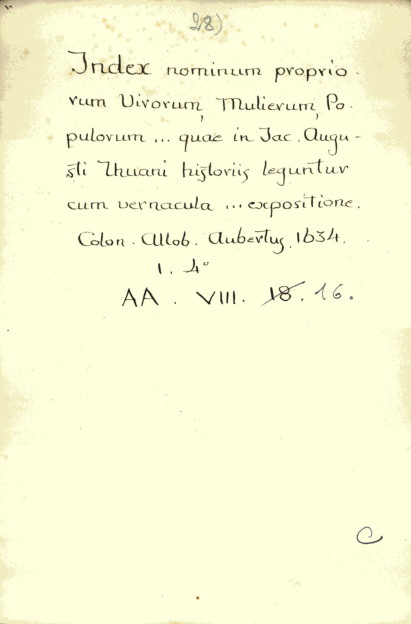 28)
Index nominum proprio-
rum Virorum, Mulierum, Po-
pulorum ... quae in Jac. Augu-
sti Thuani historijs leguntur
cum vernacula ... expositione.
Colon. Allob. Aubertus, 1634.
1. 4°
AA. VIII. 18. 16.
C